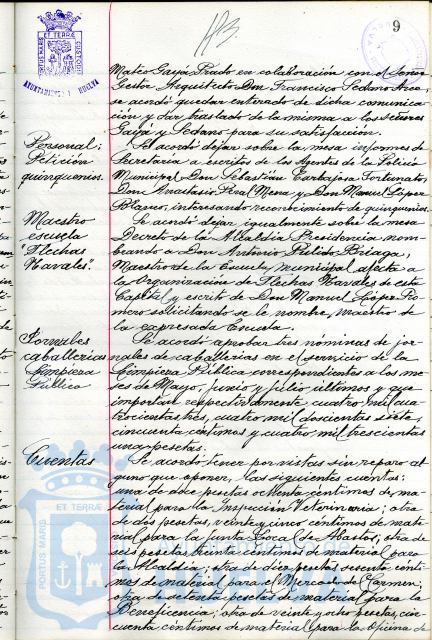 9
PORTUS MARIS ET TERRÆ CUSTODIA
AYUNTAMIENTO HUELVA
Mateo Gayá Prado en colaboración con el Señor
Gestor Arquitecto Don Francisco Sedano Arce,
se acordó quedar enterado de dicha comunica-
ción, y dar traslado de la misma a los señores
Gayá y Sedano para su satisfacción.
Personal:
Petición
quinquenios.
Se acordó dejar sobre la mesa informes de
Secretaría a escritos de los Agentes de la Policía
Municipal Don Sebastián Fortunato,
Don Anastasio Mena y Don Manuel López
Blanco, interesando reconocimiento de quinquenios.
Maestro
escuela
"Flechas
Navales".
Se acordó dejar igualmente sobre la mesa
Decreto de la Alcaldía Presidencia nom-
brando a Don Antonio Pulido
Maestro de la Escuela municipal afecta a
la Organización de Flechas Navales de esta
Capital y escrito de Don Manuel López Ro-
mero solicitando se le nombre maestro de
la expresada Escuela
Jornales
caballerías
Limpieza
Pública
Se acordó aprobar tres nóminas de jor-
nales de caballerías en el servicio de la
Limpieza Pública correspondientes a los me-
ses de Mayo, Junio y Julio últimos y que
importan respectivamente cuatro mil cua
trocientas tres, cuatro mil doscientas siete,
cincuenta céntimos y cuatro mil trescientas
una pesetas.
Cuentas
Se acordó tener por vistas sin reparo al
guno que oponer, las siguientes cuentas:
una de doce pesetas ochenta céntimos de ma-
terial para la Inspección Veterinaria; otra
de dos pesetas, veinte y cinco céntimos de mate-
rial para la Junta Local de Abastos; otra de
seis pesetas treinta céntimos de material para
la Alcaldía; otra de diez pesetas sesenta cénti-
mos de material para el Mercado del Carmen;
otra de setenta pesetas de material para la
Beneficencia; otra de veinte y ocho pesetas, cin-
cuenta céntimos de material para la Oficina de
PORTUS MARIS ET TERRÆ